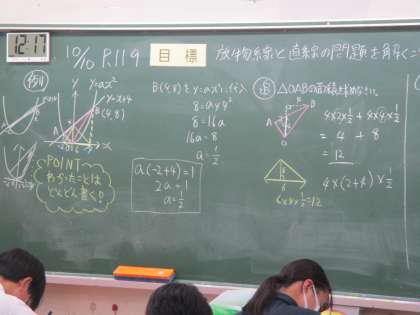 12:17
10/10 P.119
目標
放物線と直線の問題を解く
例
y
y=ax²
y=x+4
B(4,8)
A
POINT
わかったことは
どんどん書く!
B(4,8)をy=ax²に代入
8=a×4²
8=16a
16a=8
a=1/2
a(-2+4)=1
2a=1
a=1/2
△OABの面積を求めなさい。
B
A
4×2×1/2+4×4×1/2
= 4 + 8
= 12
6
6×4×1/2=12
4×(2+4)×1/2